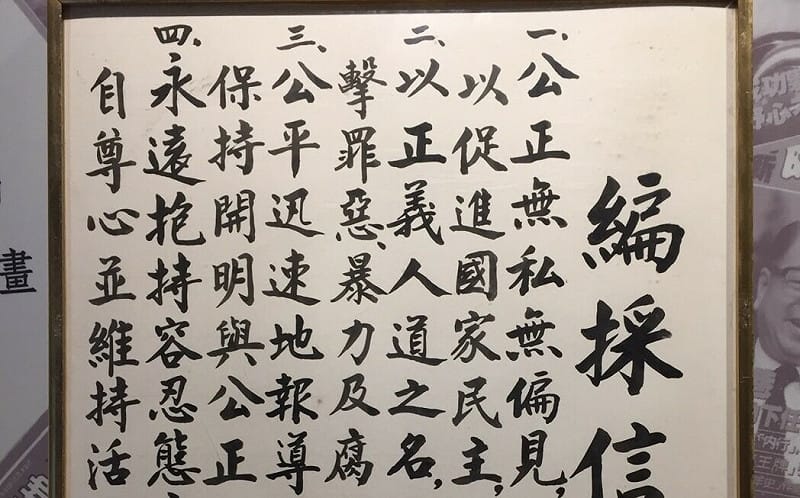 編採信
一、公正無私無偏見,
以促進國家民主,
二、以正義人道之名,
擊罪惡、暴力及腐
三、公平迅速地報導
保持開明與公正
四、永遠抱持容忍態
自尊心並維持活
畫